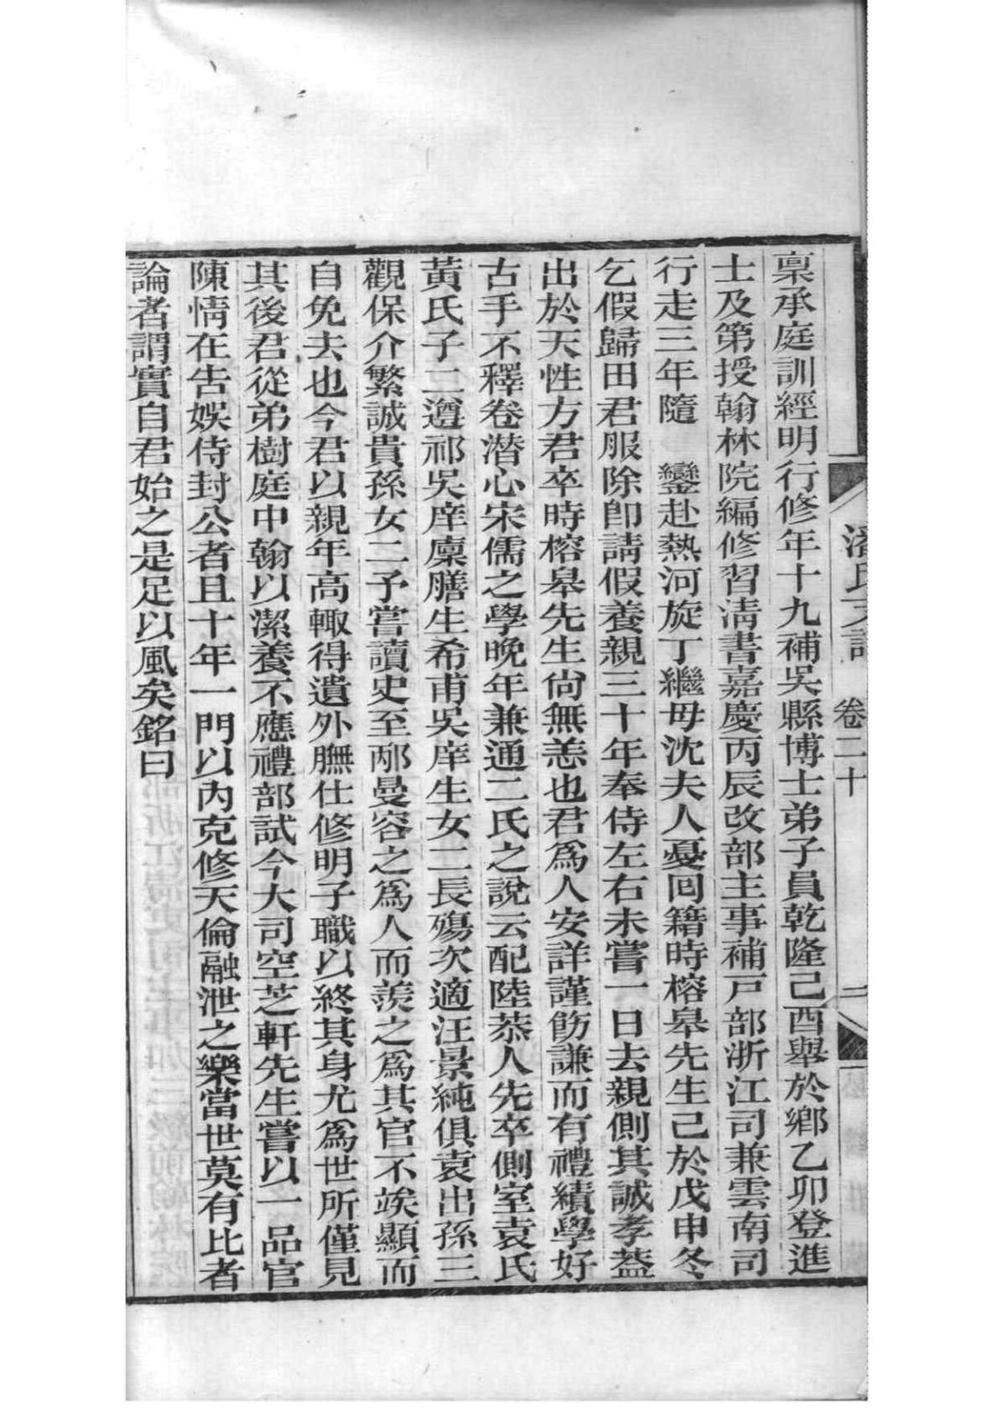 稟承庭訓經明行修年十九補吳縣博士弟子員乾隆己酉舉於鄉乙卯登進
士及第授翰林院編修習清書嘉慶丙辰改部主事補戶部浙江司兼雲南司
行走三年隨　鑾赴熱河旋丁繼母沈夫人憂回籍時榕皋先生已於戊申冬
乞假歸田君服除卽請假養親三十年奉侍左右未嘗一日去親側其誠孝葢
出於天性方君卒時榕皋先生尙無恙也君爲人安詳謹飭謙而有禮績學好
古手不釋卷潛心宋儒之學晚年兼通二氏之說云配陸恭人先卒側室袁氏
黃氏子二遵祁吳庠廩膳生希甫吳庠生女二長殤次適汪景純俱袁出孫三
觀保介繁誠貴孫女二予嘗讀史至邴曼容之爲人而羨之爲其官不竢顯而
自免去也今君以親年高輙得遺外膴仕修明子職以終其身尤爲世所僅見
其後君從弟樹庭中翰以潔養不應禮部試今大司空芝軒先生嘗以一品官
陳情在告娛侍封公者且十年一門以內克修天倫融泄之樂當世莫有比者
論者謂實自君始之是足以風矣銘曰
卷二十